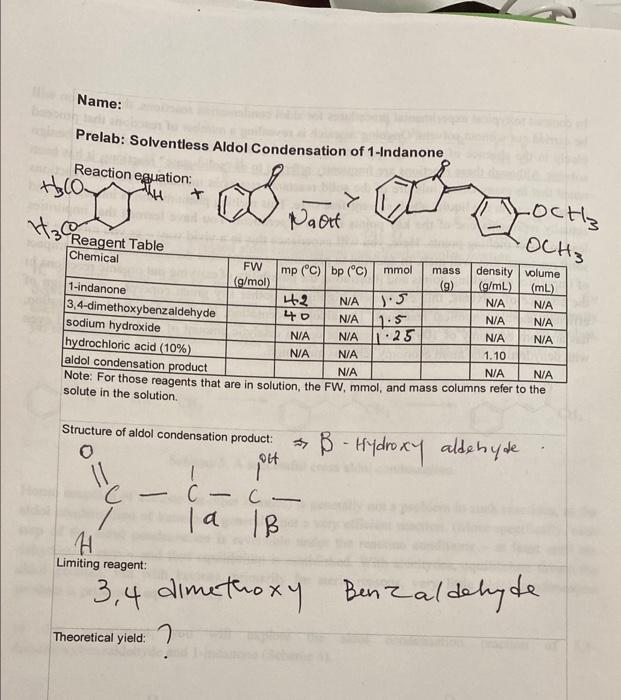 Name:
Prelab: Solventless Aldol Condensation of 1-Indanone
Reaction equation:
H3CO
H
+
O
NaOH
O
OCH3
H3CO
OCH3
Reagent Table
Chemical FW (g/mol) mp (°C) bp (°C) mmol mass (g) density (g/mL) volume (mL)
1-indanone 42 N/A 1.5 N/A N/A
3,4-dimethoxybenzaldehyde 40 N/A 1.5 N/A N/A
sodium hydroxide N/A N/A 1.25 N/A N/A
hydrochloric acid (10%) N/A N/A 1.10
aldol condensation product N/A N/A N/A
Note: For those reagents that are in solution, the FW, mmol, and mass columns refer to the
solute in the solution.
Structure of aldol condensation product: ⇒ β - Hydroxy aldehyde .
O OH
C - C - C -
H a β
Limiting reagent:
3,4 dimethoxy Benzaldehyde
Theoretical yield: ?